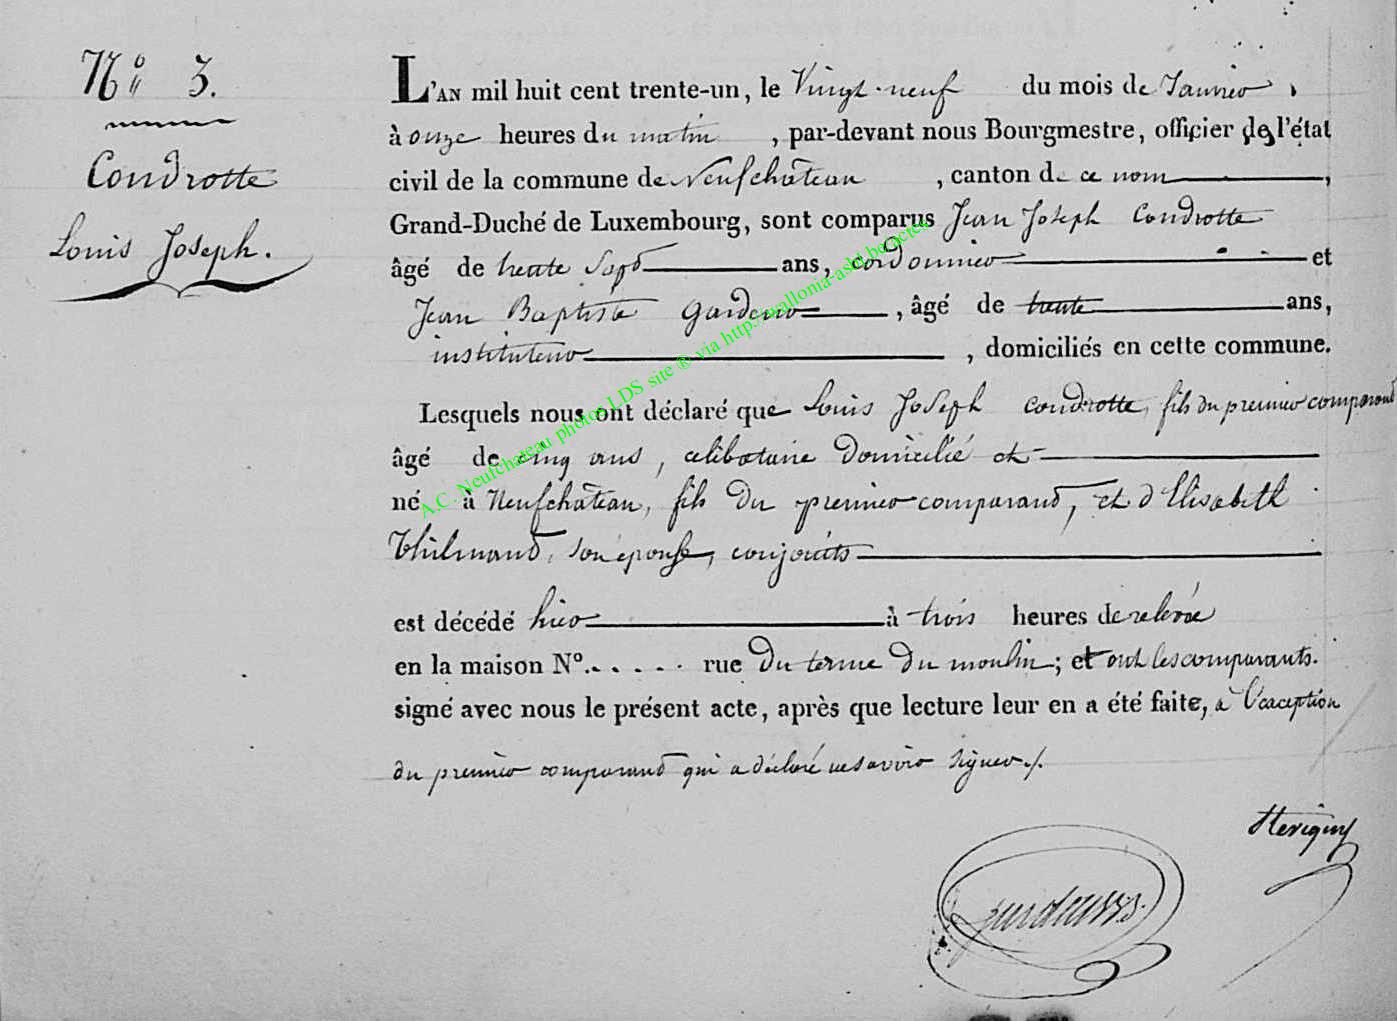 N° 3.
Condrotte
Louis Joseph.
L'AN mil huit cent trente-un, le Vingt-neuf du mois de Janvier,
à onze heures du matin, par-devant nous Bourgmestre, officier de l'état
civil de la commune de Neufchâteau, canton de ce nom,
Grand-Duché de Luxembourg, sont comparus Jean Joseph Condrotte
âgé de trente Sept ans, cordonnier et
Jean Baptiste, âgé de trente ans,
instituteur, domiciliés en cette commune.
Lesquels nous ont déclaré que Louis Joseph Condrotte, fils du premier comparant
âgé de cinq ans, celibataire domicilié et
né à Neufchâteau, fils du premier comparant, et d'Elisabeth
Thilmand, son épouse, conjoints
est décédé hier à trois heures de relevée
en la maison N°..... rue du terme du moulin; et ont les comparants
signé avec nous le présent acte, après que lecture leur en a été faite, à l'éxception
du premier comparant qui a déclaré ne savoir signer./.
A.C. Neufchateau photos LDS site ® via http://wallonia-asbl.be/actes